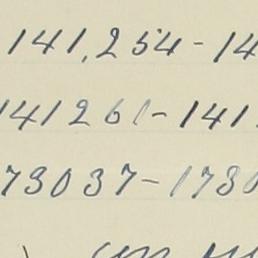 141,254-14
141261-141
73037-1730